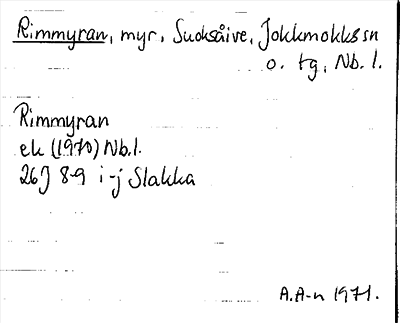 Rimmyran, myr, Suoksåive, Jokkmokks sn
o. tg, Nb. l.
Rimmyran
ek (1970) Nb.l.
26J 8-9 i-j Slakka
A.A-n 1971.